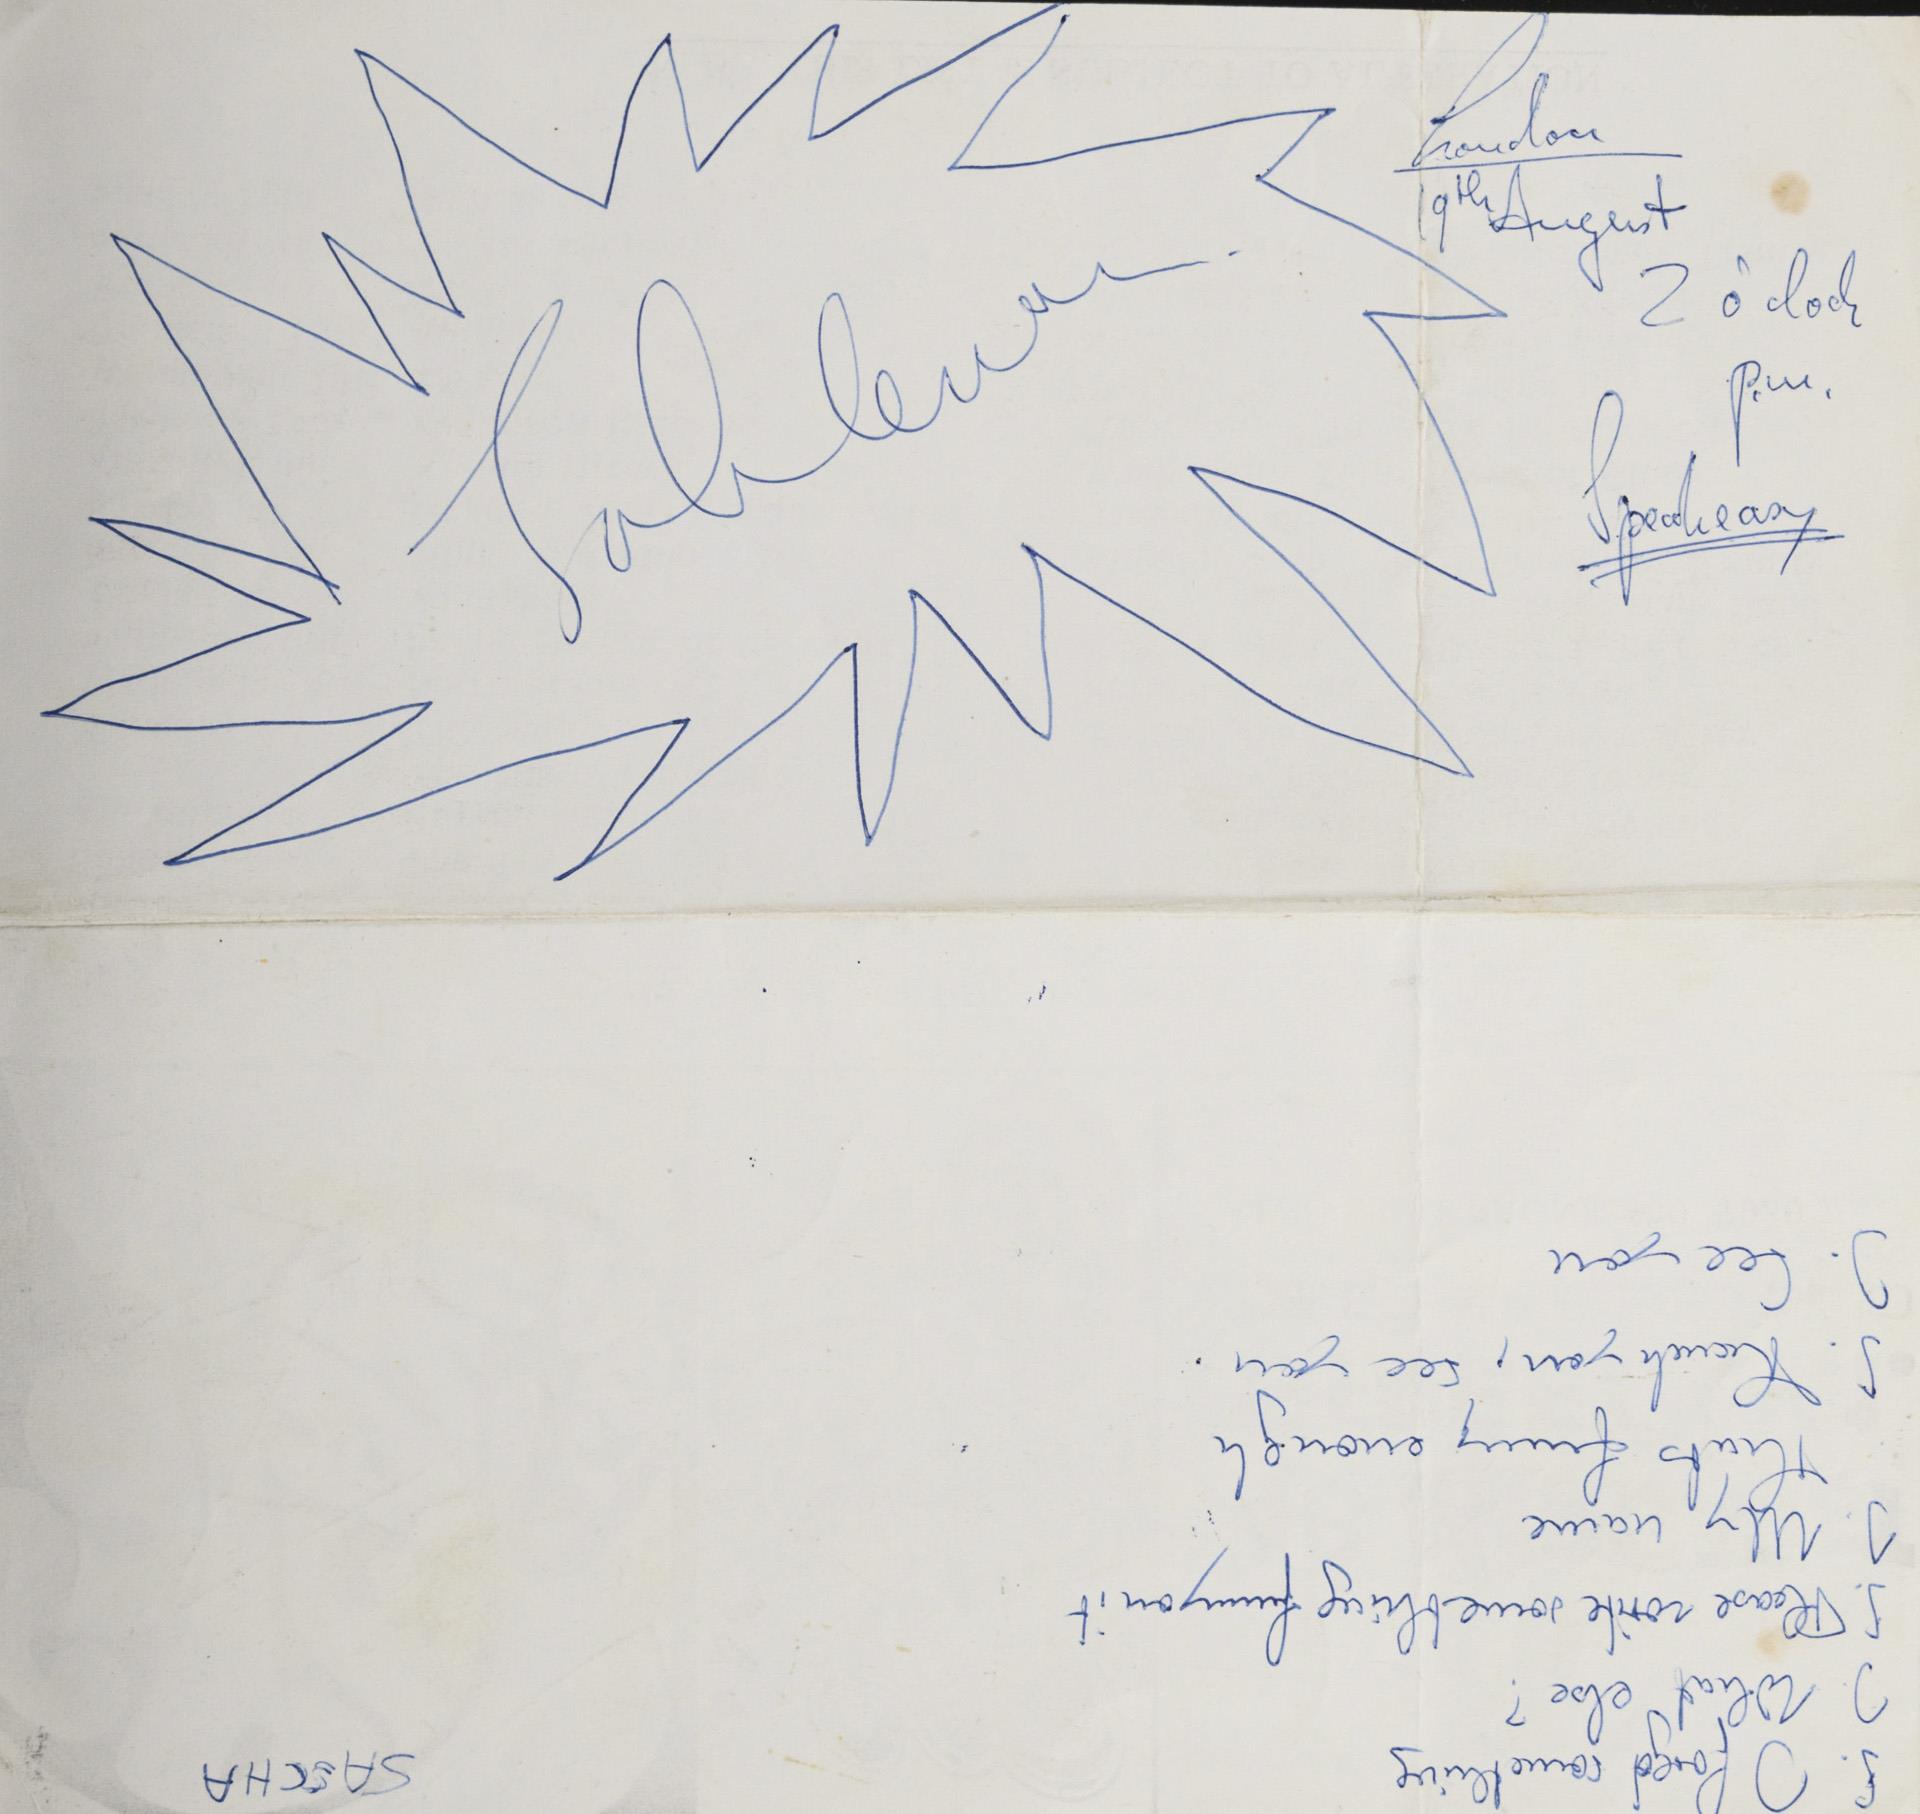 London
19th August
2 o'clock
p.m.
Speakeasy
SASCHA
S. I forgot something
J. What else?
S. Please write something funny on it
J. My name
that's funny enough
S. Thank you, see you.
J. See you